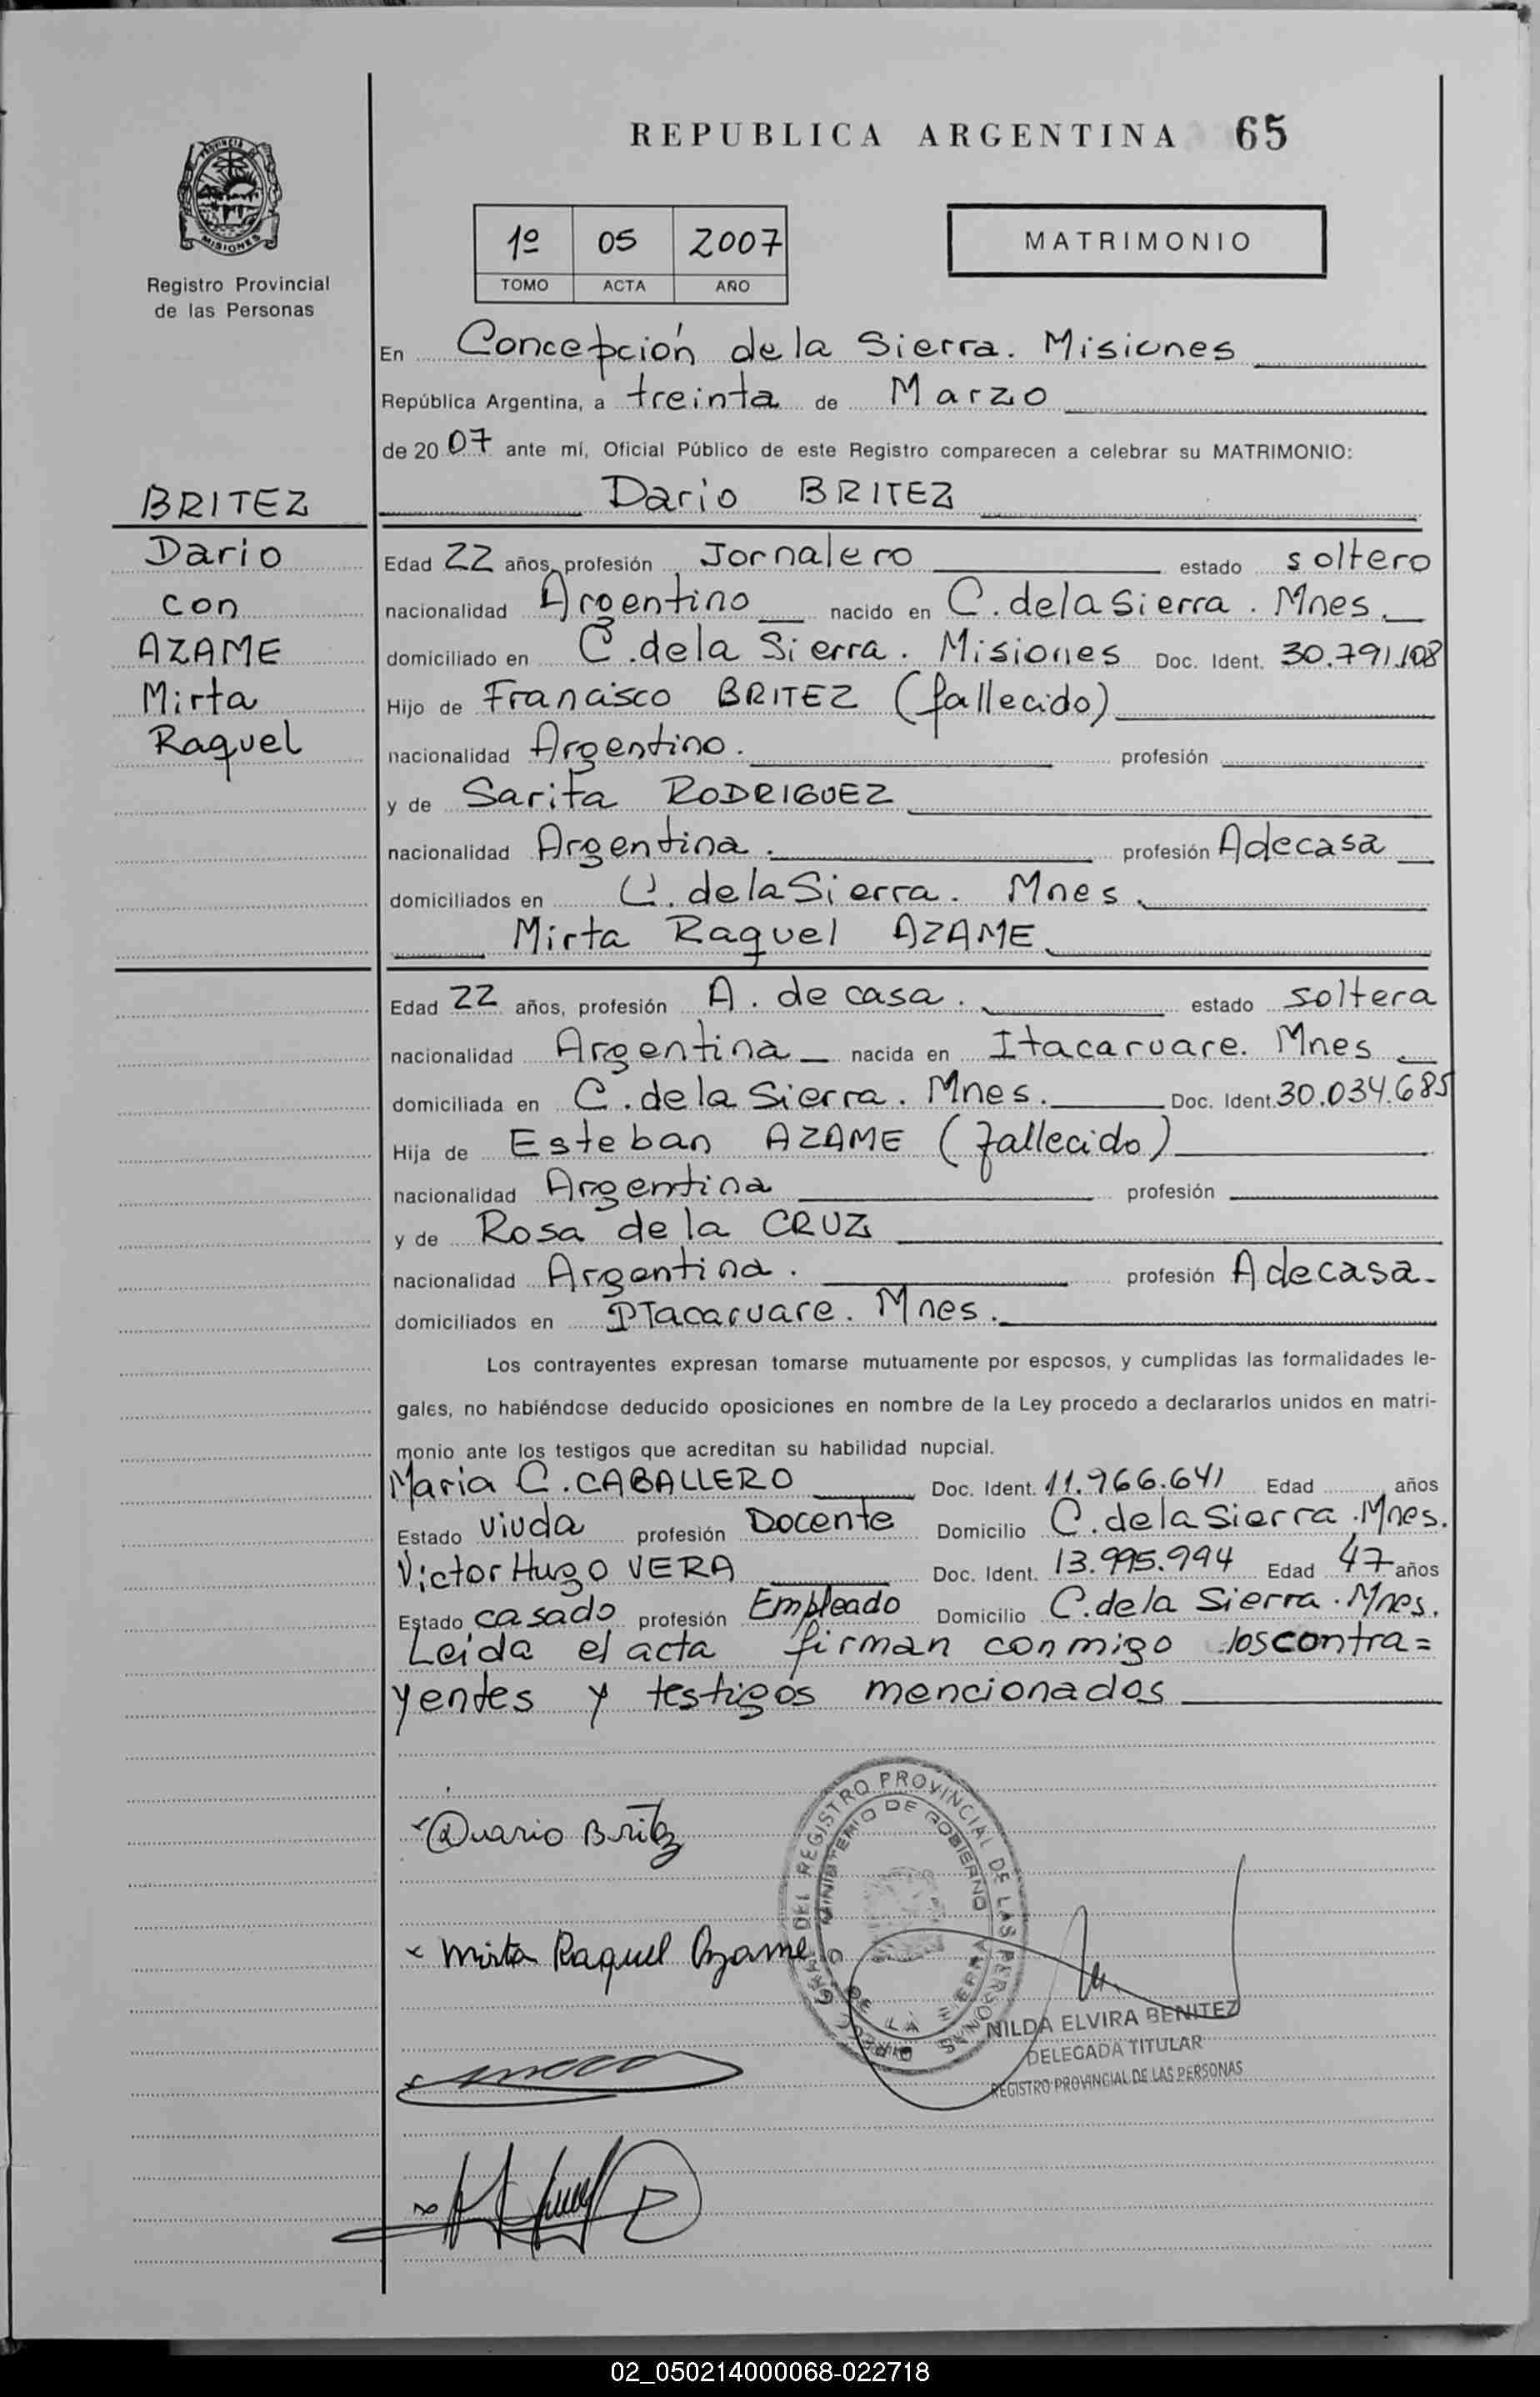 REPUBLICA ARGENTINA 65
PROVINCIA
MISIONES
Registro Provincial
de las Personas
1º 05 2007
TOMO ACTA AÑO
MATRIMONIO
En Concepción de la Sierra. Misiones
República Argentina, a treinta de Marzo
de 2007 ante mí, Oficial Público de este Registro comparecen a celebrar su MATRIMONIO:
BRITEZ
Dario
con
AZAME
Mirta
Raquel
Dario BRITEZ
Edad 22 años, profesión Jornalero estado soltero
nacionalidad Argentino nacido en C. de la Sierra. Mnes.
domiciliado en C. de la Sierra. Misiones Doc. Ident. 30.791.108
Hijo de Francisco BRITEZ (fallecido)
nacionalidad Argentino. profesión
y de Sarita RODRIGUEZ
nacionalidad Argentina. profesión A de casa
domiciliados en C. de la Sierra. Mnes.
Mirta Raquel AZAME
Edad 22 años, profesión A. de casa. estado soltera
nacionalidad Argentina nacida en Itacaruare. Mnes.
domiciliada en C. de la Sierra. Mnes. Doc. Ident. 30.034.685
Hija de Esteban AZAME (fallecido)
nacionalidad Argentina profesión
y de Rosa de la CRUZ
nacionalidad Argentina. profesión A de casa
domiciliados en Itacaruare. Mnes.
Los contrayentes expresan tomarse mutuamente por esposos, y cumplidas las formalidades le-
gales, no habiéndose deducido oposiciones en nombre de la Ley procedo a declararlos unidos en matri-
monio ante los testigos que acreditan su habilidad nupcial.
Maria C. CABALLERO Doc. Ident. 11.966.641 Edad años
Estado viuda profesión Docente Domicilio C. de la Sierra. Mnes.
Victor Hugo VERA Doc. Ident. 13.995.994 Edad 47 años
Estado casado profesión Empleado Domicilio C. de la Sierra. Mnes.
Leida el acta firman conmigo los contra=
yentes y testigos mencionados
Dario Britez
Mirta Raquel Azame
DEL REGISTRO PROVINCIAL DE LAS PERSONAS
MINISTERIO DE GOBIERNO
DE LA SIERRA
NILDA ELVIRA BENITEZ
DELEGADA TITULAR
REGISTRO PROVINCIAL DE LAS PERSONAS
02_050214000068-022718